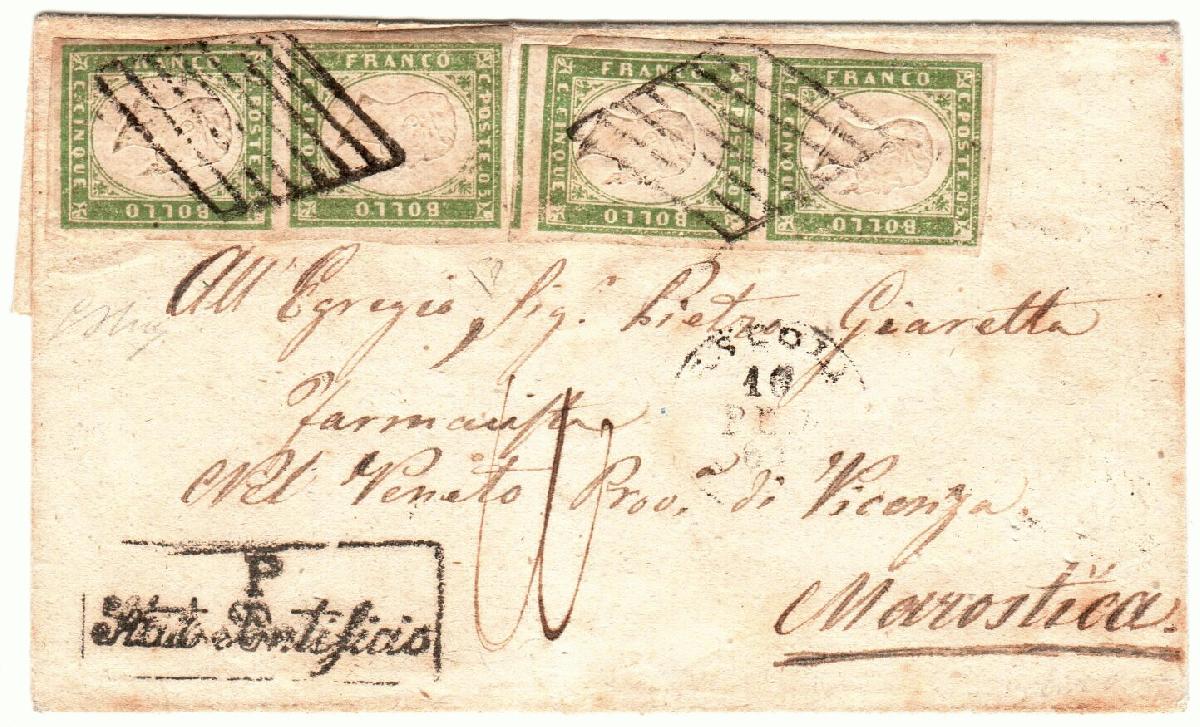 FRANCO C. POSTE 05 BOLLO C. CINQUE
FRANCO C. POSTE 05 BOLLO C. CINQUE
FRANCO C. POSTE 05 BOLLO C. CINQUE
FRANCO C. POSTE 05 BOLLO C. CINQUE
All' Egregio Sig.r Pietro Giaretta
farmacista
Nel Veneto Prov. di Vicenza.
Marostica.
10
P
Stato Pontificio